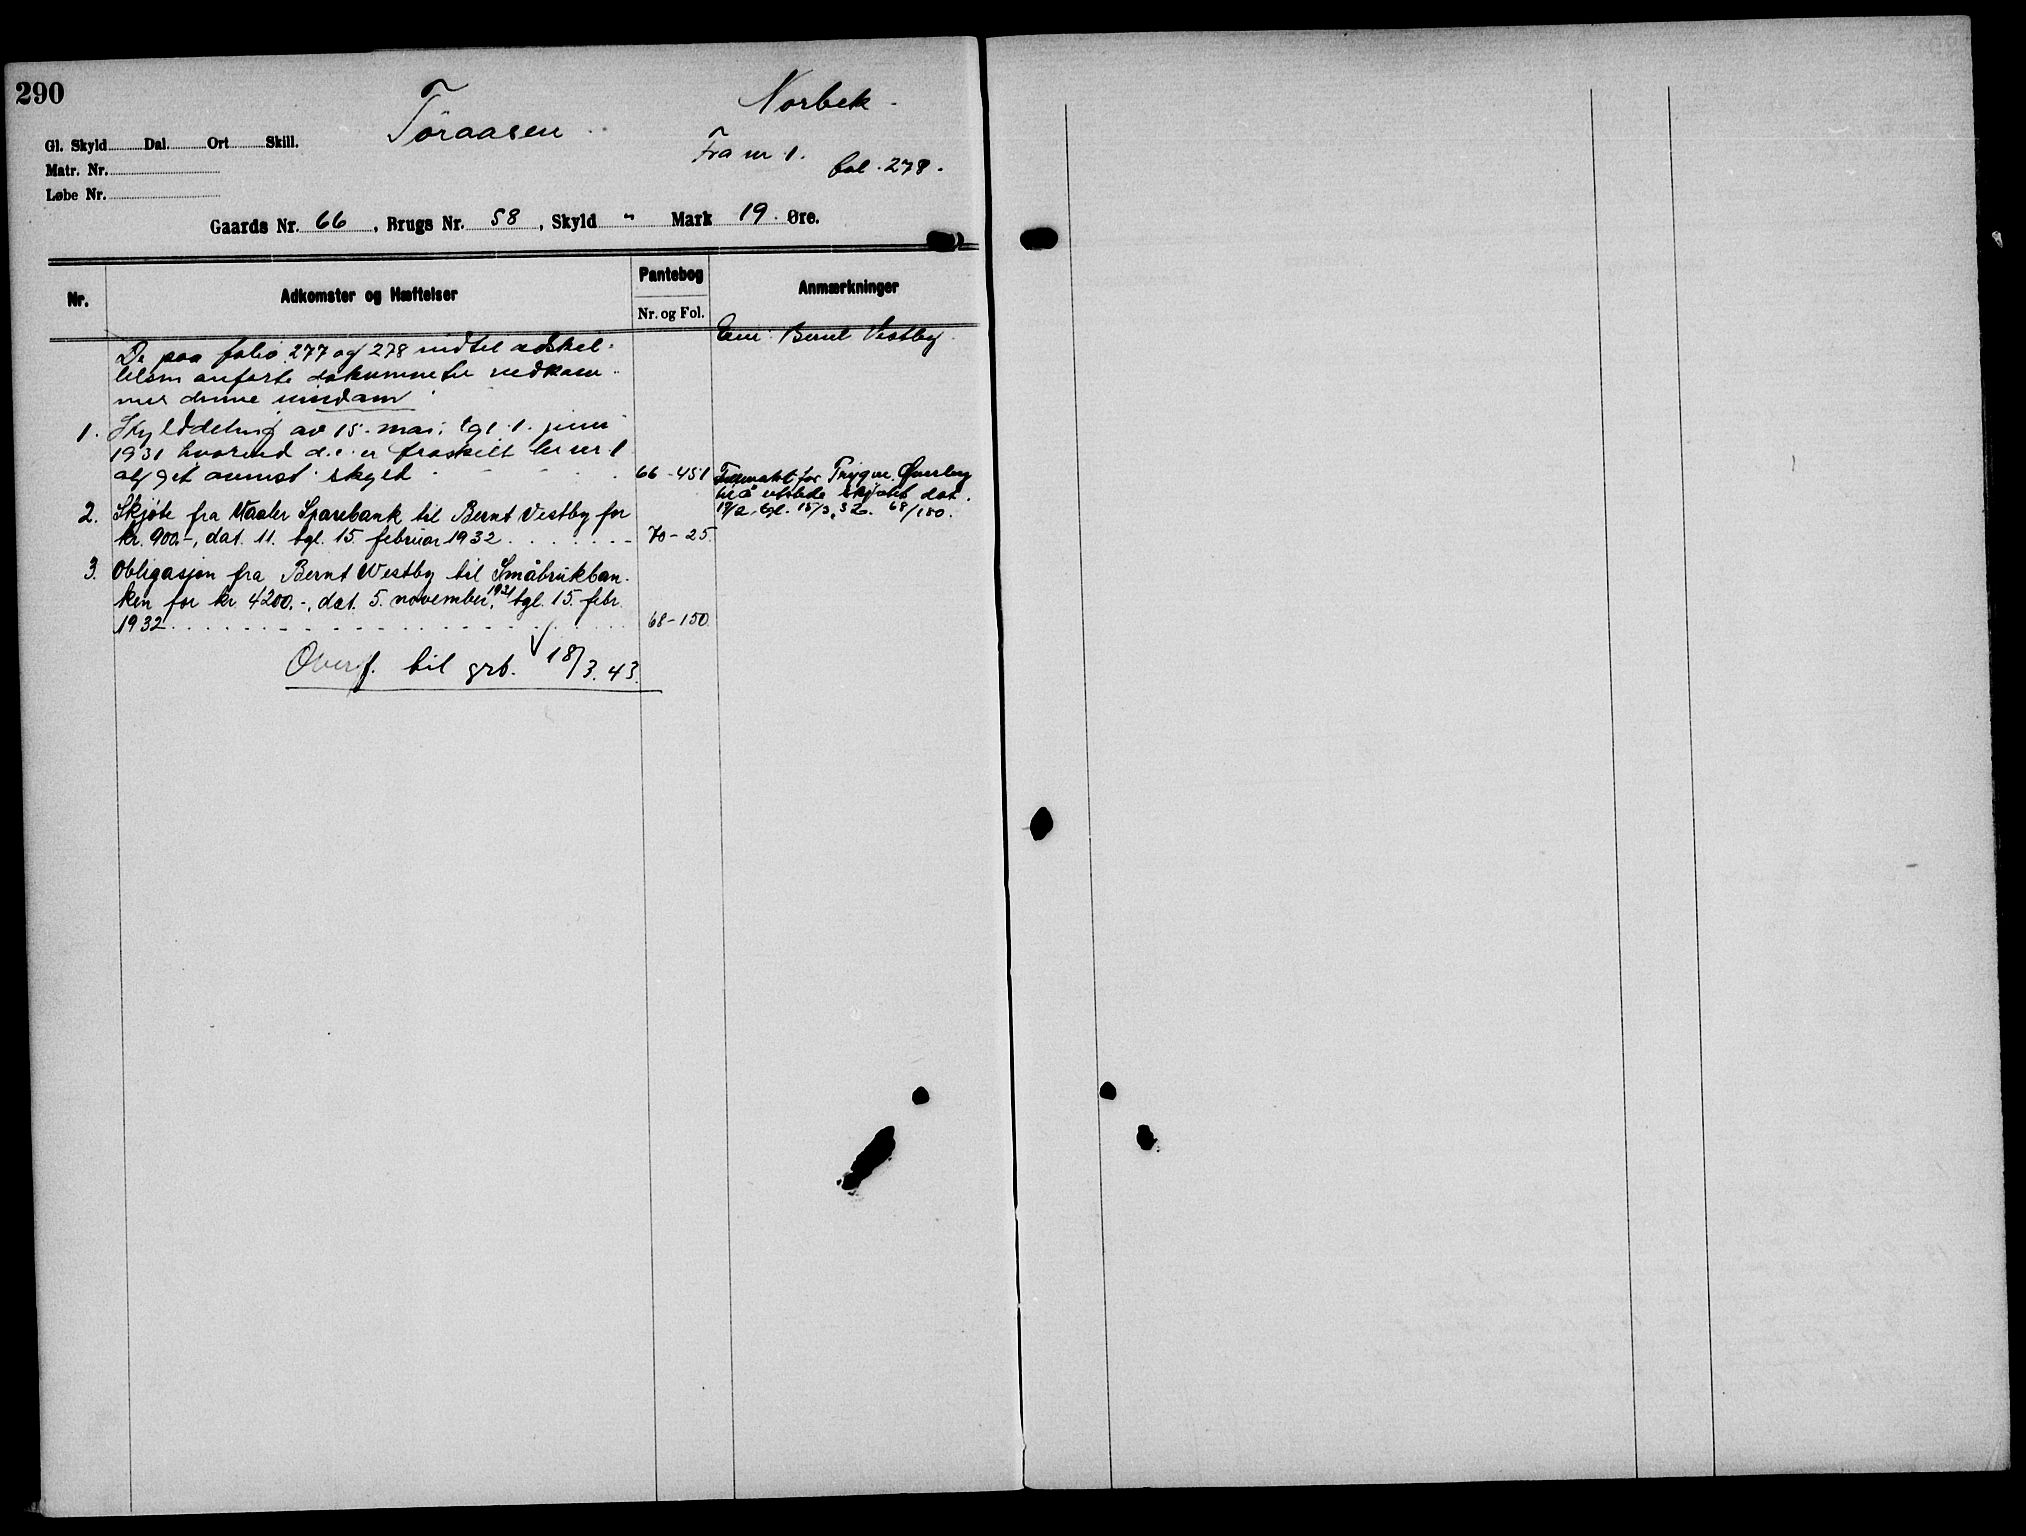 290
Toraasen
Norbek
Gl. Skyld Dal. Ort Skill.
Fra nr. 1.
fol. 278.
Matr. Nr.
Løbe Nr.
Gaards Nr. 66, Brugs Nr. 58, Skyld " Mark 19 Øre.
Nr. Adkomster og Hæftelser Pantebog Anmærkninger
Nr. og Fol.
Eier: Bernt Vestby.
De paa folio 277 og 278 indtil adskil-
lelsen anførte dokumenter vedkom-
mer denne eiendom
1. Skylddeling av 15. mai, tgl. 1. juni
1931 hvorved d.e. er fraskilt br. nr. 1
og git anmst. skyld 66-451
Fullmakt for Trygve Øverby
til å utstede skjøtet dat.
18/2, tgl. 15/3.32. 68/180.
2. Skjøte fra Vaaler Sparebank til Bernt Vestby for
kr. 900.-, dat. 11. tgl. 15. februar 1932 70-25.
3. Obligasjon fra Bernt Westby til Småbrukban-
ken for kr. 4200.-, dat. 5. november, 1931 tgl. 15. febr.
1932 68-150.
Overf. til grb. 18/3.43.